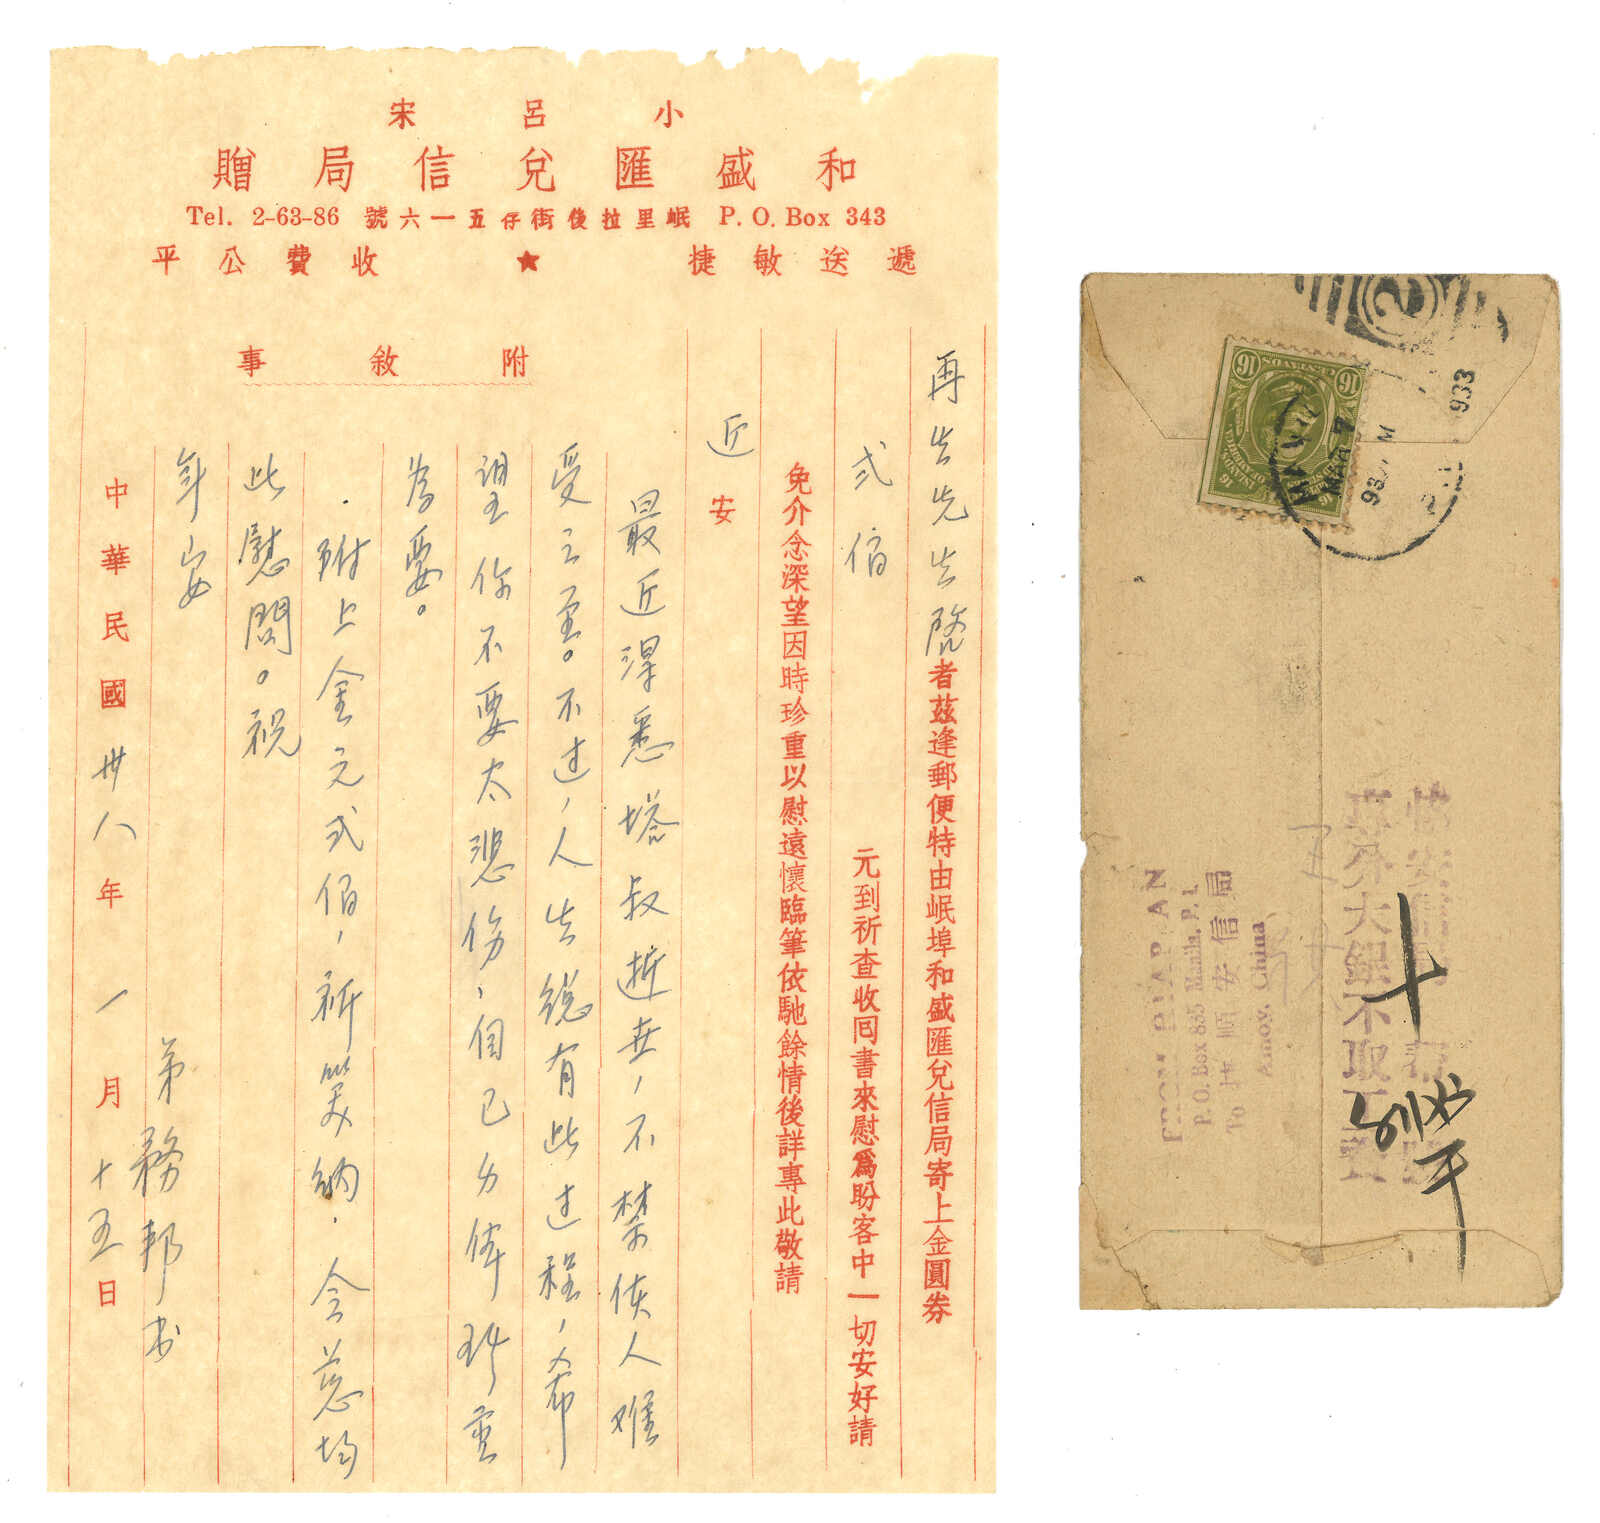 小呂宋
和盛匯兌信局贈
P. O. Box 343 岷里拉後街仔五一六號 Tel. 2-63-86
遞送敏捷 ★ 收費公平
再生先生啓者茲逢郵便特由岷埠和盛匯兌信局寄上金圓券
弍佰 元到祈查收囘書來慰爲盼客中一切安好請
免介念深望因時珍重以慰遠懷臨筆依馳餘情後詳專此敬請
近安
附敘事
最近得悉塔叔逝世,不禁使人难
受之至。不过,人生總有此过程,希
望你不要太悲伤,自己力保珍重
为要。
附上金元弍佰,祈笑纳.令慈均
此慰問。祝
年安
弟務邦书
中華民國卅八年一月十五日
16 CENTAVOS 16
MANILA
MAR 7
933
FROM
P. O. Box 835 Manila, P. I.
To 順安信局
Amoy, China
大銀不取工
十